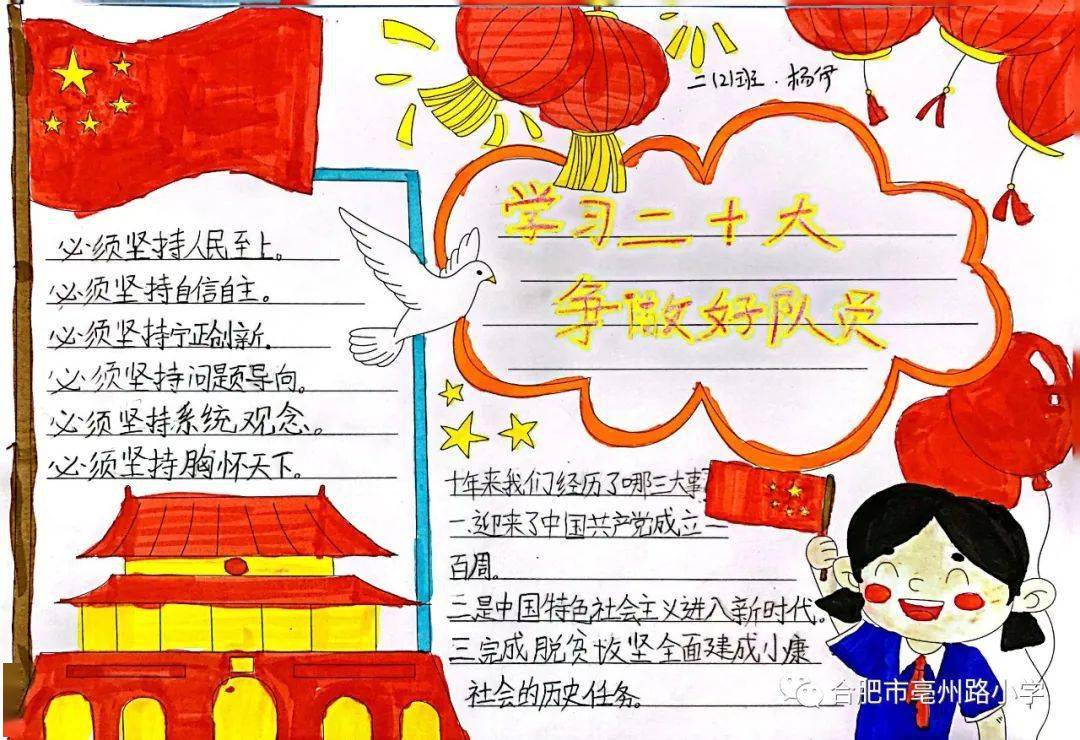 二(2)班·杨伊
学习二十大
争做好队员
必须坚持人民至上。
必须坚持自信自主。
必须坚持守正创新。
必须坚持问题导向。
必须坚持系统观念。
必须坚持胸怀天下。
十年来我们经历了哪三大事
一.迎来了中国共产党成立
百周。
二是中国特色社会主义进入新时代。
三完成脱贫攻坚全面建成小康
社会的历史任务。
合肥市亳州路小学